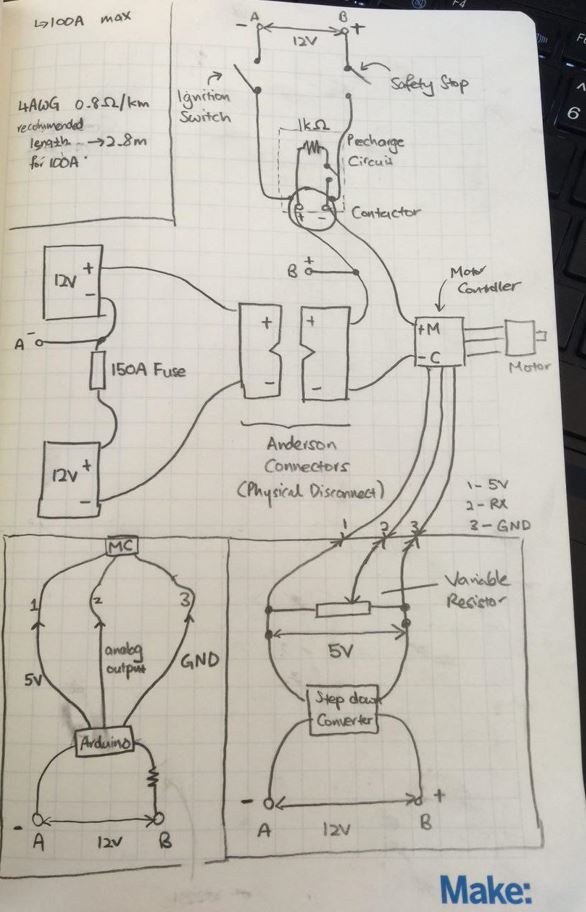 ↳100A max
4AWG 0.8Ω/km
recommended
length → 2.8m
for 100A
- A B +
12V
Ignition
Switch
Safety Stop
1kΩ
Pecharge
Circuit
+ -
Contactor
B +
12V +
-
A -
150A Fuse
12V +
-
+ +
- -
Anderson
Connectors
(Physical Disconnect)
Motor
Controller
+M
-C
Motor
1 - 5V
2 - RX
3 - GND
MC
1 2 3
5V
analog
output
GND
Arduino
- A 12V B
1 2 3
Variable
Resistor
5V
Step down
Converter
- +
A 12V B
Make: